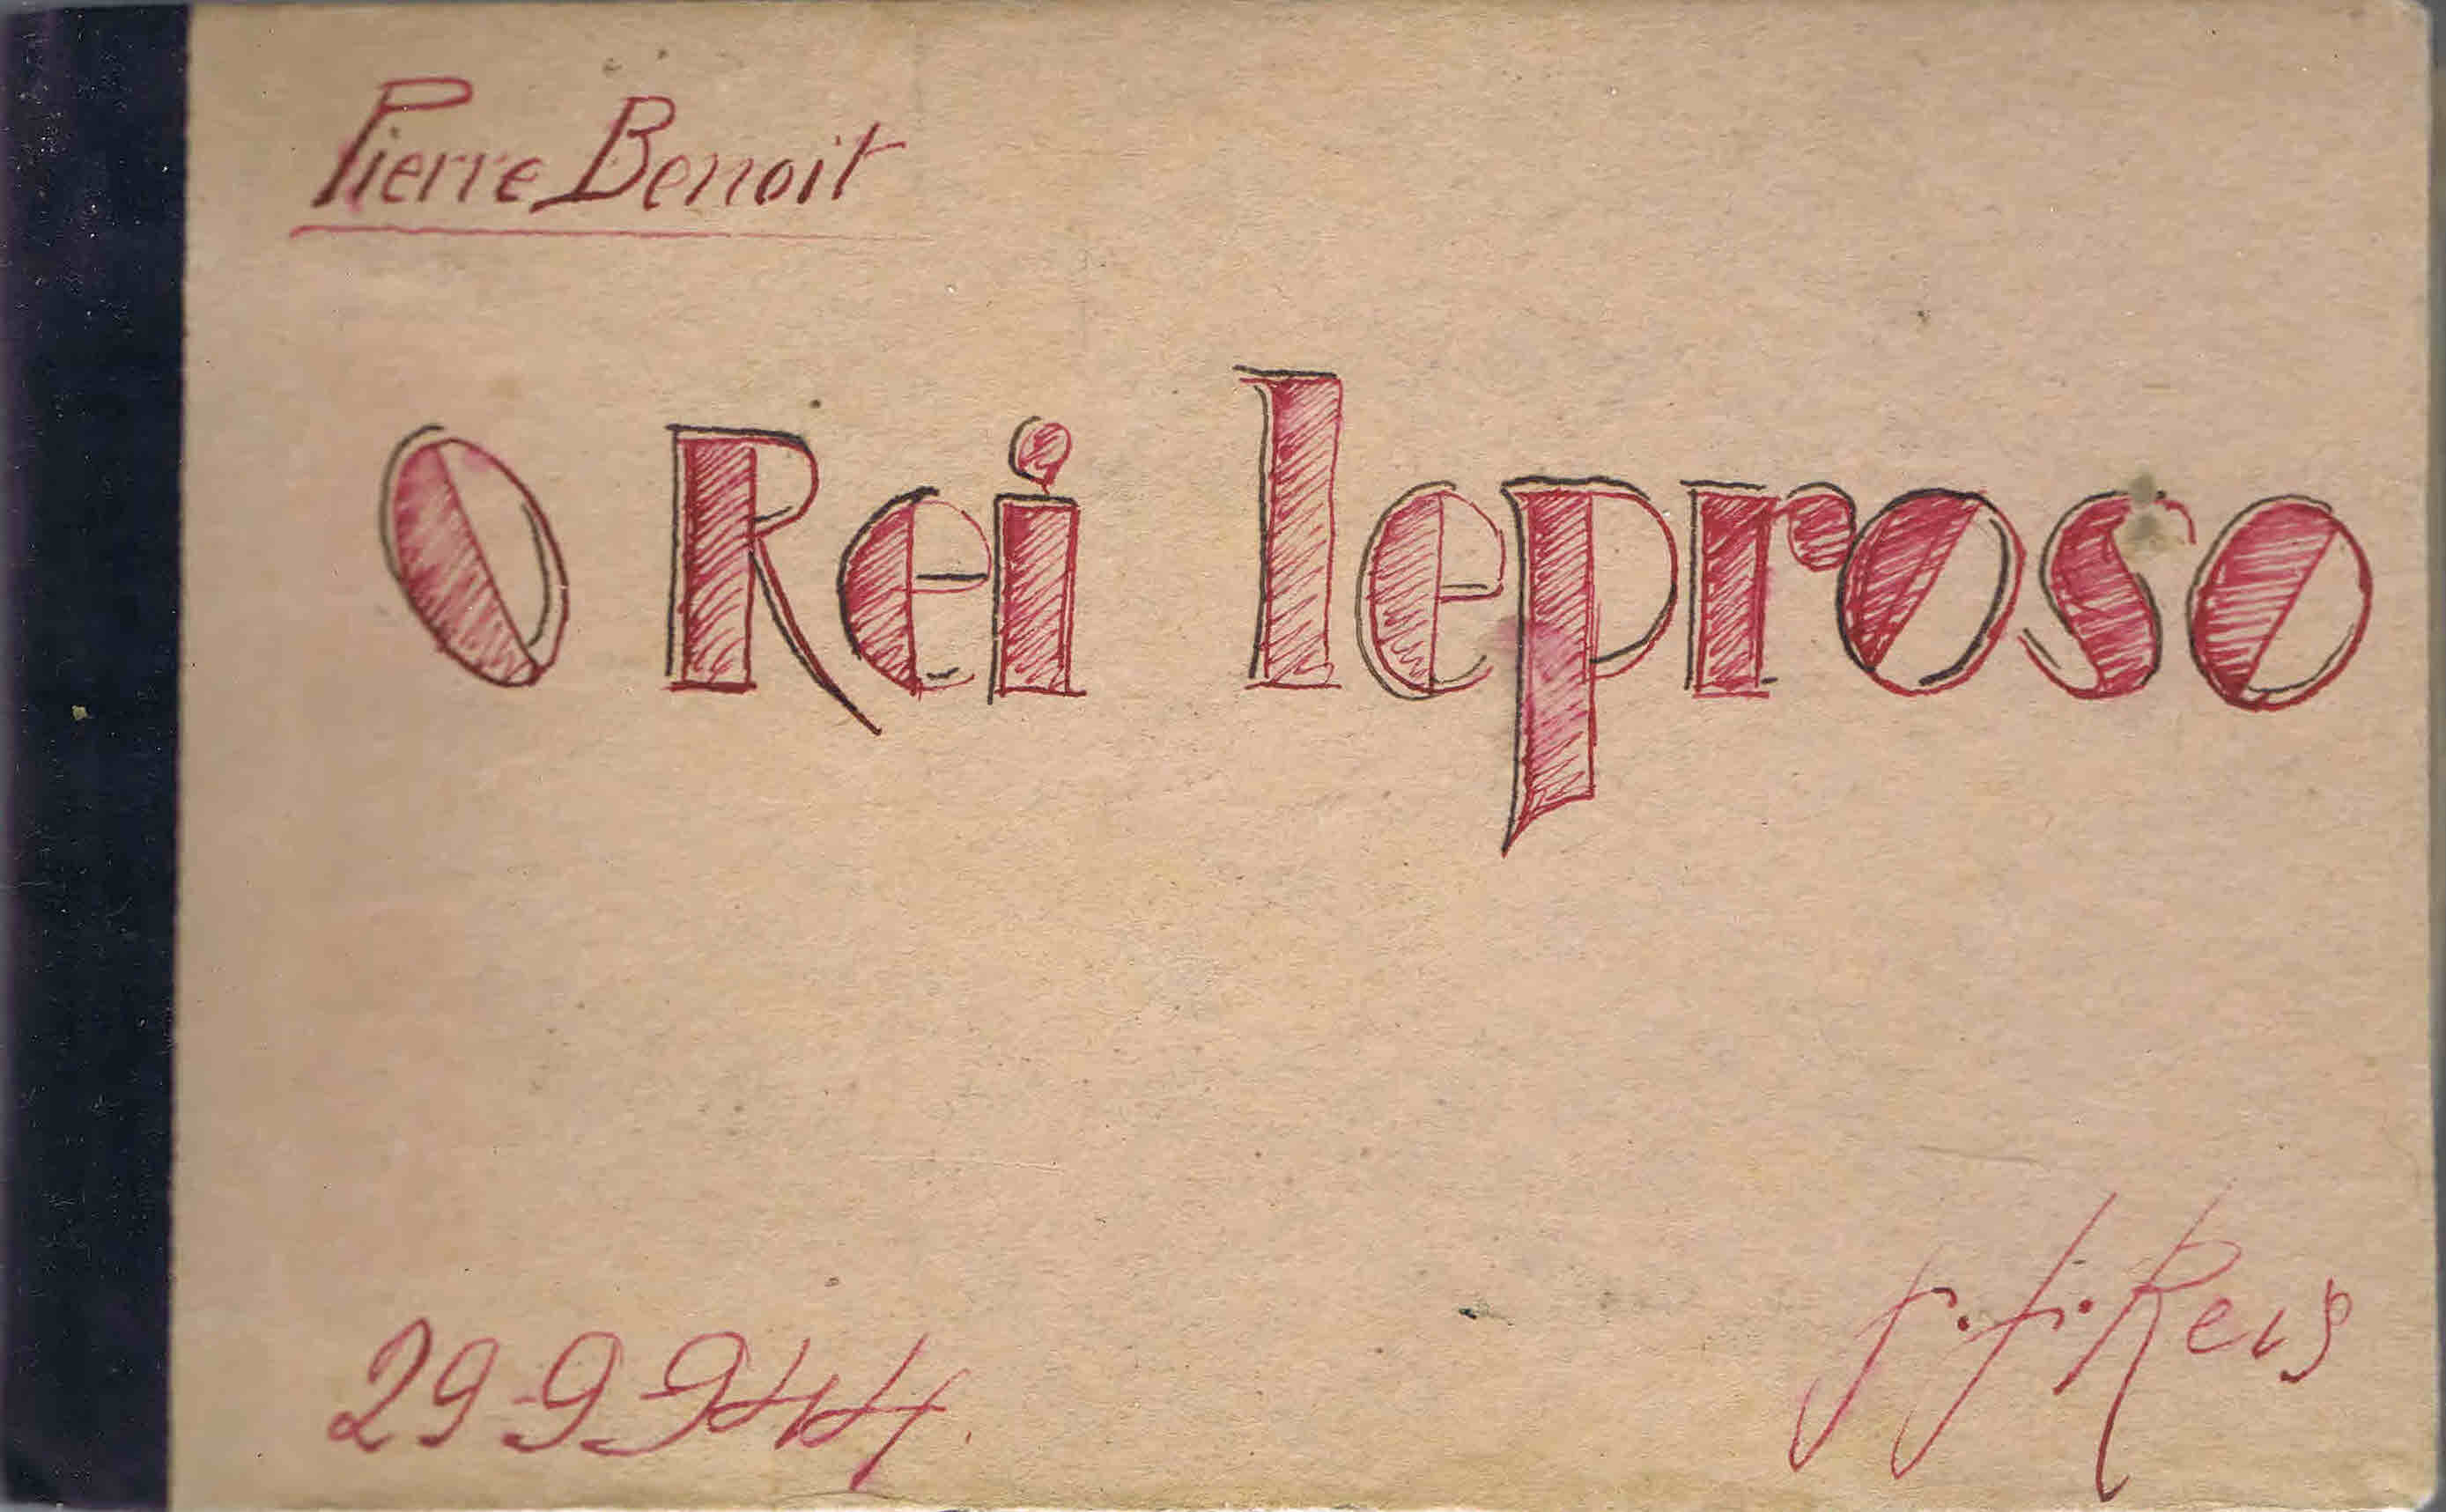 Pierre Benoit
O Rei leproso
29-9-944.
J. J. Reis